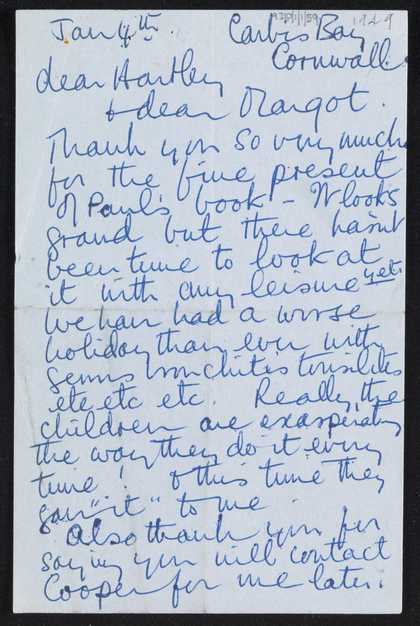 9251/1/59 1949
Jan 4th. Carbis Bay
Cornwall.
dear Hartley
& dear Margot.
Thank you so very much
for the fine present
of Paul's book – It looks
grand but there hasn't
been time to look at
it with any leisure yet.
We have had a worse
holiday than ever with
germs bronchitis tonsilitis
etc etc etc. Really, the
children are exasperating
the way they do it every
time! & this time they
gave "it" to me.
Also thank you for
saying you will contact
Cooper for me later.